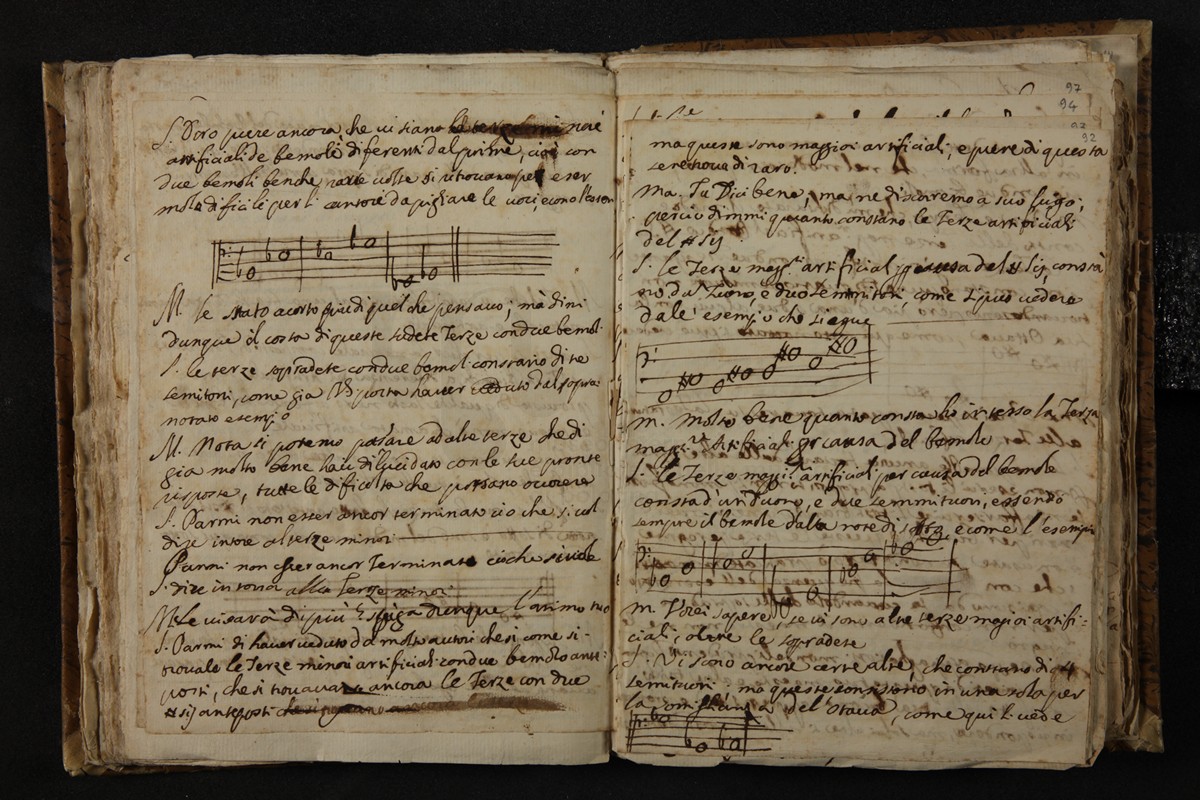 S. Doro puere ancora che vi siano le terze minori
artificiali de bemoli diferenti dal prime, cioè con
due bemoli benche rare volte si ritrovano per eser
molto dificile per li cantore da pigliare le voci, e cono
M. le stato acorto piu di quel che pensavo; mà dimi
dunque il costa di queste sudete Terze con due bemol
S. le terze sopradete con due bemoli constario di tre
semitoni, come gia V.S. potra haver veduto dal sopra
notato esempio
M. Nota si potemo pasare ad altre terze che di
gia molto bene hai dilucidato con le tue pronte
risposte, tutte le dificolta che possano ocorere
S. Parmi non esser ancor terminato cio che si vol
dire intorno al terze minori
Parmi non esser ancor Terminato cio che si vole
S. dire in torno alla Terze minori
M. Se vi sarà di più spiega dunque l'animo tuo
S. Parmi di haver veduto da molto autori che si come si
trovale le Terze minori artificiali con due bemolo ante:
posti, che si trovavano ancora le Terze con due
# sij anteposti
97
94
93
92
ma queste sono maggiori artificiali, e puere di questa
se ne trova di raro.
Ma. Tu Dici bene, ma ne discoremo a suo lugo,
perciò dimmi quanto constano le Terze artificiali
del # sij
S. le Terze magg.ri artificiali per causa del # sij, consta
no da Tuono, e duo semmitoni come si puo vedere
dale esempio che siegue
M. Molto bene quanto consta ho inteso la Terza
magg.re Artificiali per causa del bemole
S. le Terze maggi.ri artificiali per causa del bemole
consta d'un Tuono, e due semmituoni, essendo
sempre il bemole dalla note di sotto, e come l'esempio
M. Vorei sapere se vi sono altre terze magiori artifi:
ciali, oltre le sopradete
S. Vi sono ancore certe altre, che constano di 4
semituoni, ma queste consistono in una sola per
la del' otava, come qui si vede